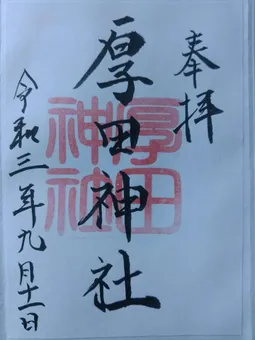 奉拝
厚田神社
厚田神社
令和三年九月十二日